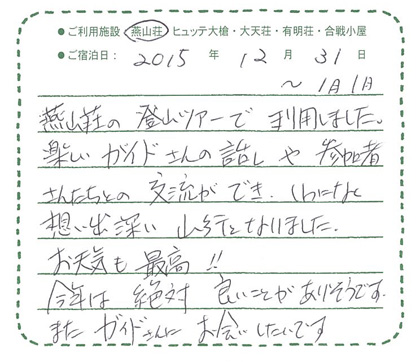 ●ご利用施設 燕山荘 ヒュッテ大槍・大天荘・有明荘・合戦小屋
●ご宿泊日： 2015 年 12 月 31 日
～ 1月1日
燕山荘の登山ツアーで利用しました。
楽しいガイドさんの話しや参加者
さんたちとの交流ができ、いつになく
想い出深い山行となりました。
お天気も最高!!
今年は絶対良いことがありそうです。
またガイドさんにお会いしたいです